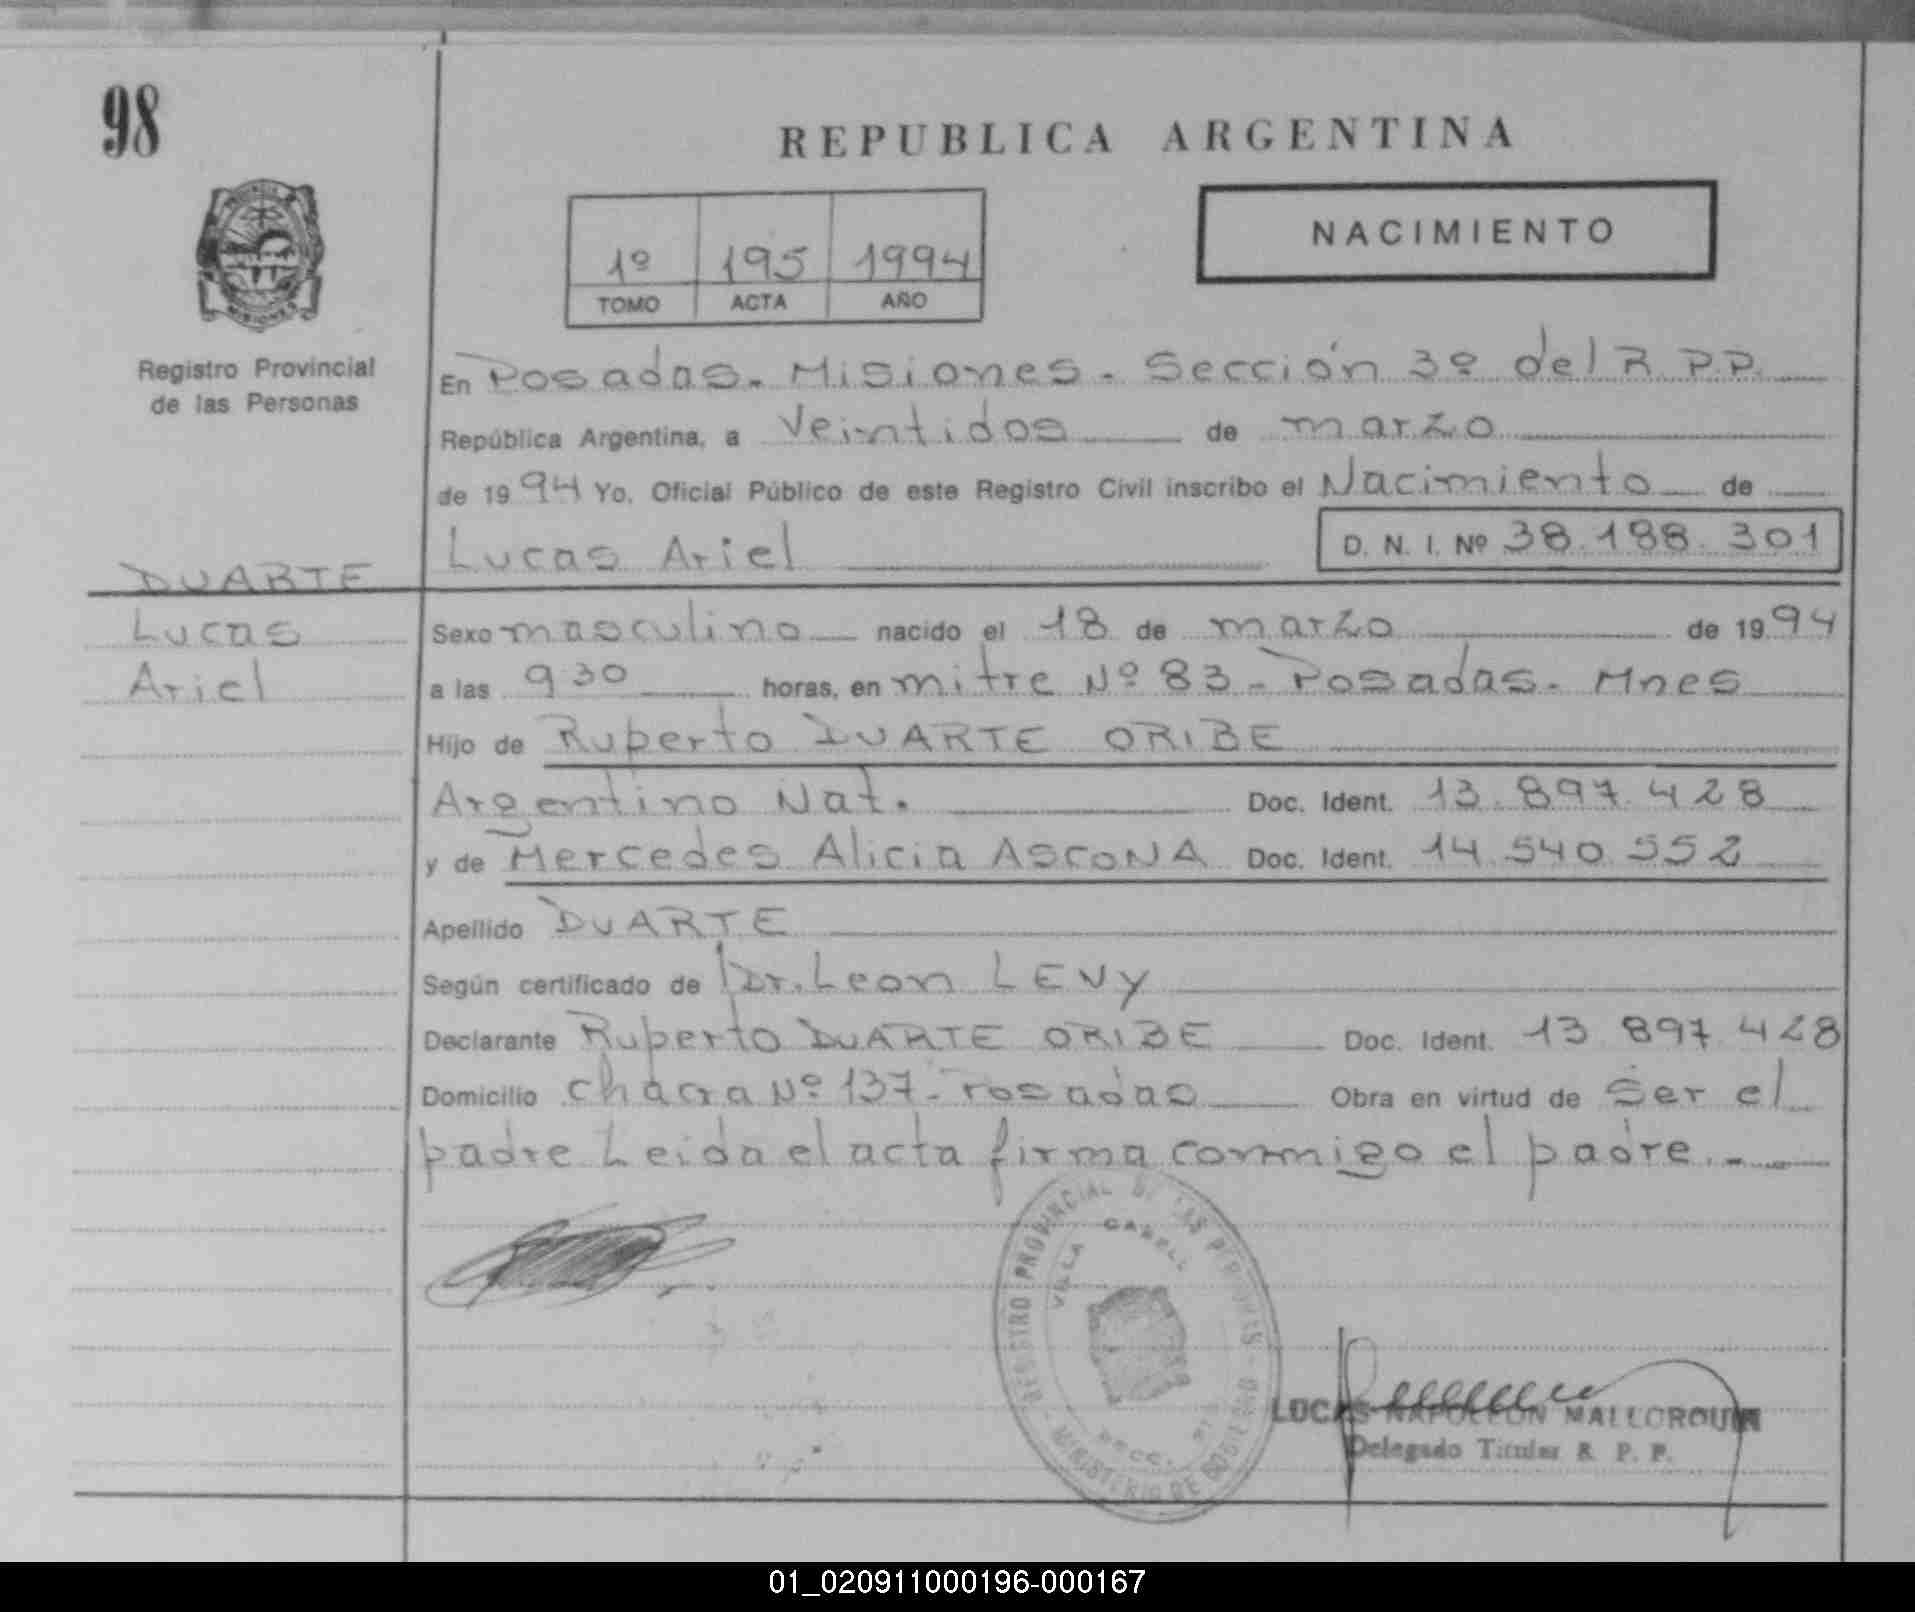 98
REPUBLICA ARGENTINA
NACIMIENTO
1º 195 1994
TOMO ACTA AÑO
Registro Provincial
de las Personas
En Posadas. Misiones. Sección 3º del R.P.P.
República Argentina, a Veintidos de marzo
de 1994 Yo, Oficial Público de este Registro Civil inscribo el Nacimiento de
Lucas Ariel D. N. I. Nº 38.188.301
DUARTE
Lucas
Ariel
Sexo masculino nacido el 18 de marzo de 1994
a las 9 30 horas, en mitre Nº 83 - Posadas. Mnes
Hijo de Ruperto DUARTE ORIBE
Argentino Nat. Doc. Ident. 13.897.428
y de Mercedes Alicia ASCONA Doc. Ident. 14.540.552
Apellido DUARTE
Según certificado de Dr. Leon LEVY
Declarante Ruperto DUARTE ORIBE Doc. Ident. 13 897.428
Domicilio chacra Nº 137 - Posadas Obra en virtud de Ser el
padre Leida el acta firma conmigo el padre.-
REGISTRO PROVINCIAL DE LAS PERSONAS
VILLA CABELL
MINISTERIO DE GOBIERNO
LUCAS NAPOLEON MALLORQUIN
Delegado Titular R. P. P.
01_020911000196-000167